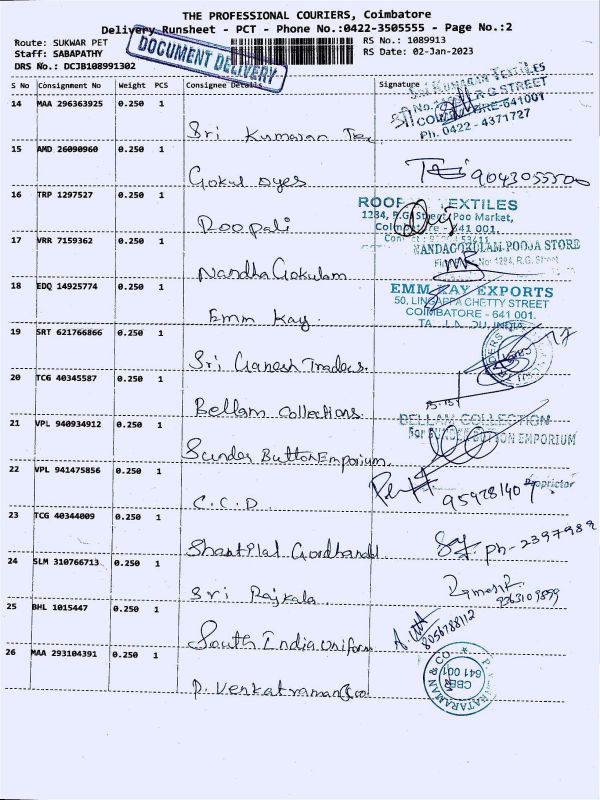 THE PROFESSIONAL COURIERS, Coimbatore
Delivery Runsheet - PCT - Phone No.:0422-3505555 - Page No.:2
Route: SUKWAR PET
RS No.: 1089913
Staff: SABAPATHY
RS Date: 02-Jan-2023
DRS No.: DCJB108991302
DOCUMENT DELIVERY
S No Consignment No Weight PCS Consignee Details Signature
14 MAA 296363925 0.250 1
Sri Kumaran Tex
SRI KUMARAN TEXTILES
R.G STREET
COIMBATORE-641001
Ph. 0422 - 4371727
15 AMD 26090960 0.250 1
Gokul Dyes
9043055500
16 TRP 1297527 0.250 1
Roopali
TEXTILES
1234, R.G. Street, Poo Market,
Coimbatore - 641 001.
17 VRR 7159362 0.250 1
NandhaGokulam
NANDAGOKULAM POOJA STORE
No: 1294, R.G. Street
18 EDQ 14925774 0.250 1
Emm Kay.
EMM KAY EXPORTS
50, LINGAPPA CHETTY STREET
COIMBATORE - 641 001.
19 SRT 621766866 0.250 1
Sri Ganesh Traders.
20 TCG 40345587 0.250 1
Bellam Collections
BELLAM COLLECTION
21 VPL 940934912 0.250 1
Sundar Button Emporium.
For SUNDER BUTTON EMPORIUM
Proprietor
22 VPL 941475856 0.250 1
C.C.D.
23 TCG 40344009 0.250 1
Shantilal Gordhandal
ph- 2397989
24 SLM 310766713 0.250 1
Sri Rajkala.
25 BHL 1015447 0.250 1
South India Uniform
8056788112
26 MAA 293104391 0.250 1
P. Venkatraman & co.
P. VENKATARAMAN & CO.
CBE
641 001